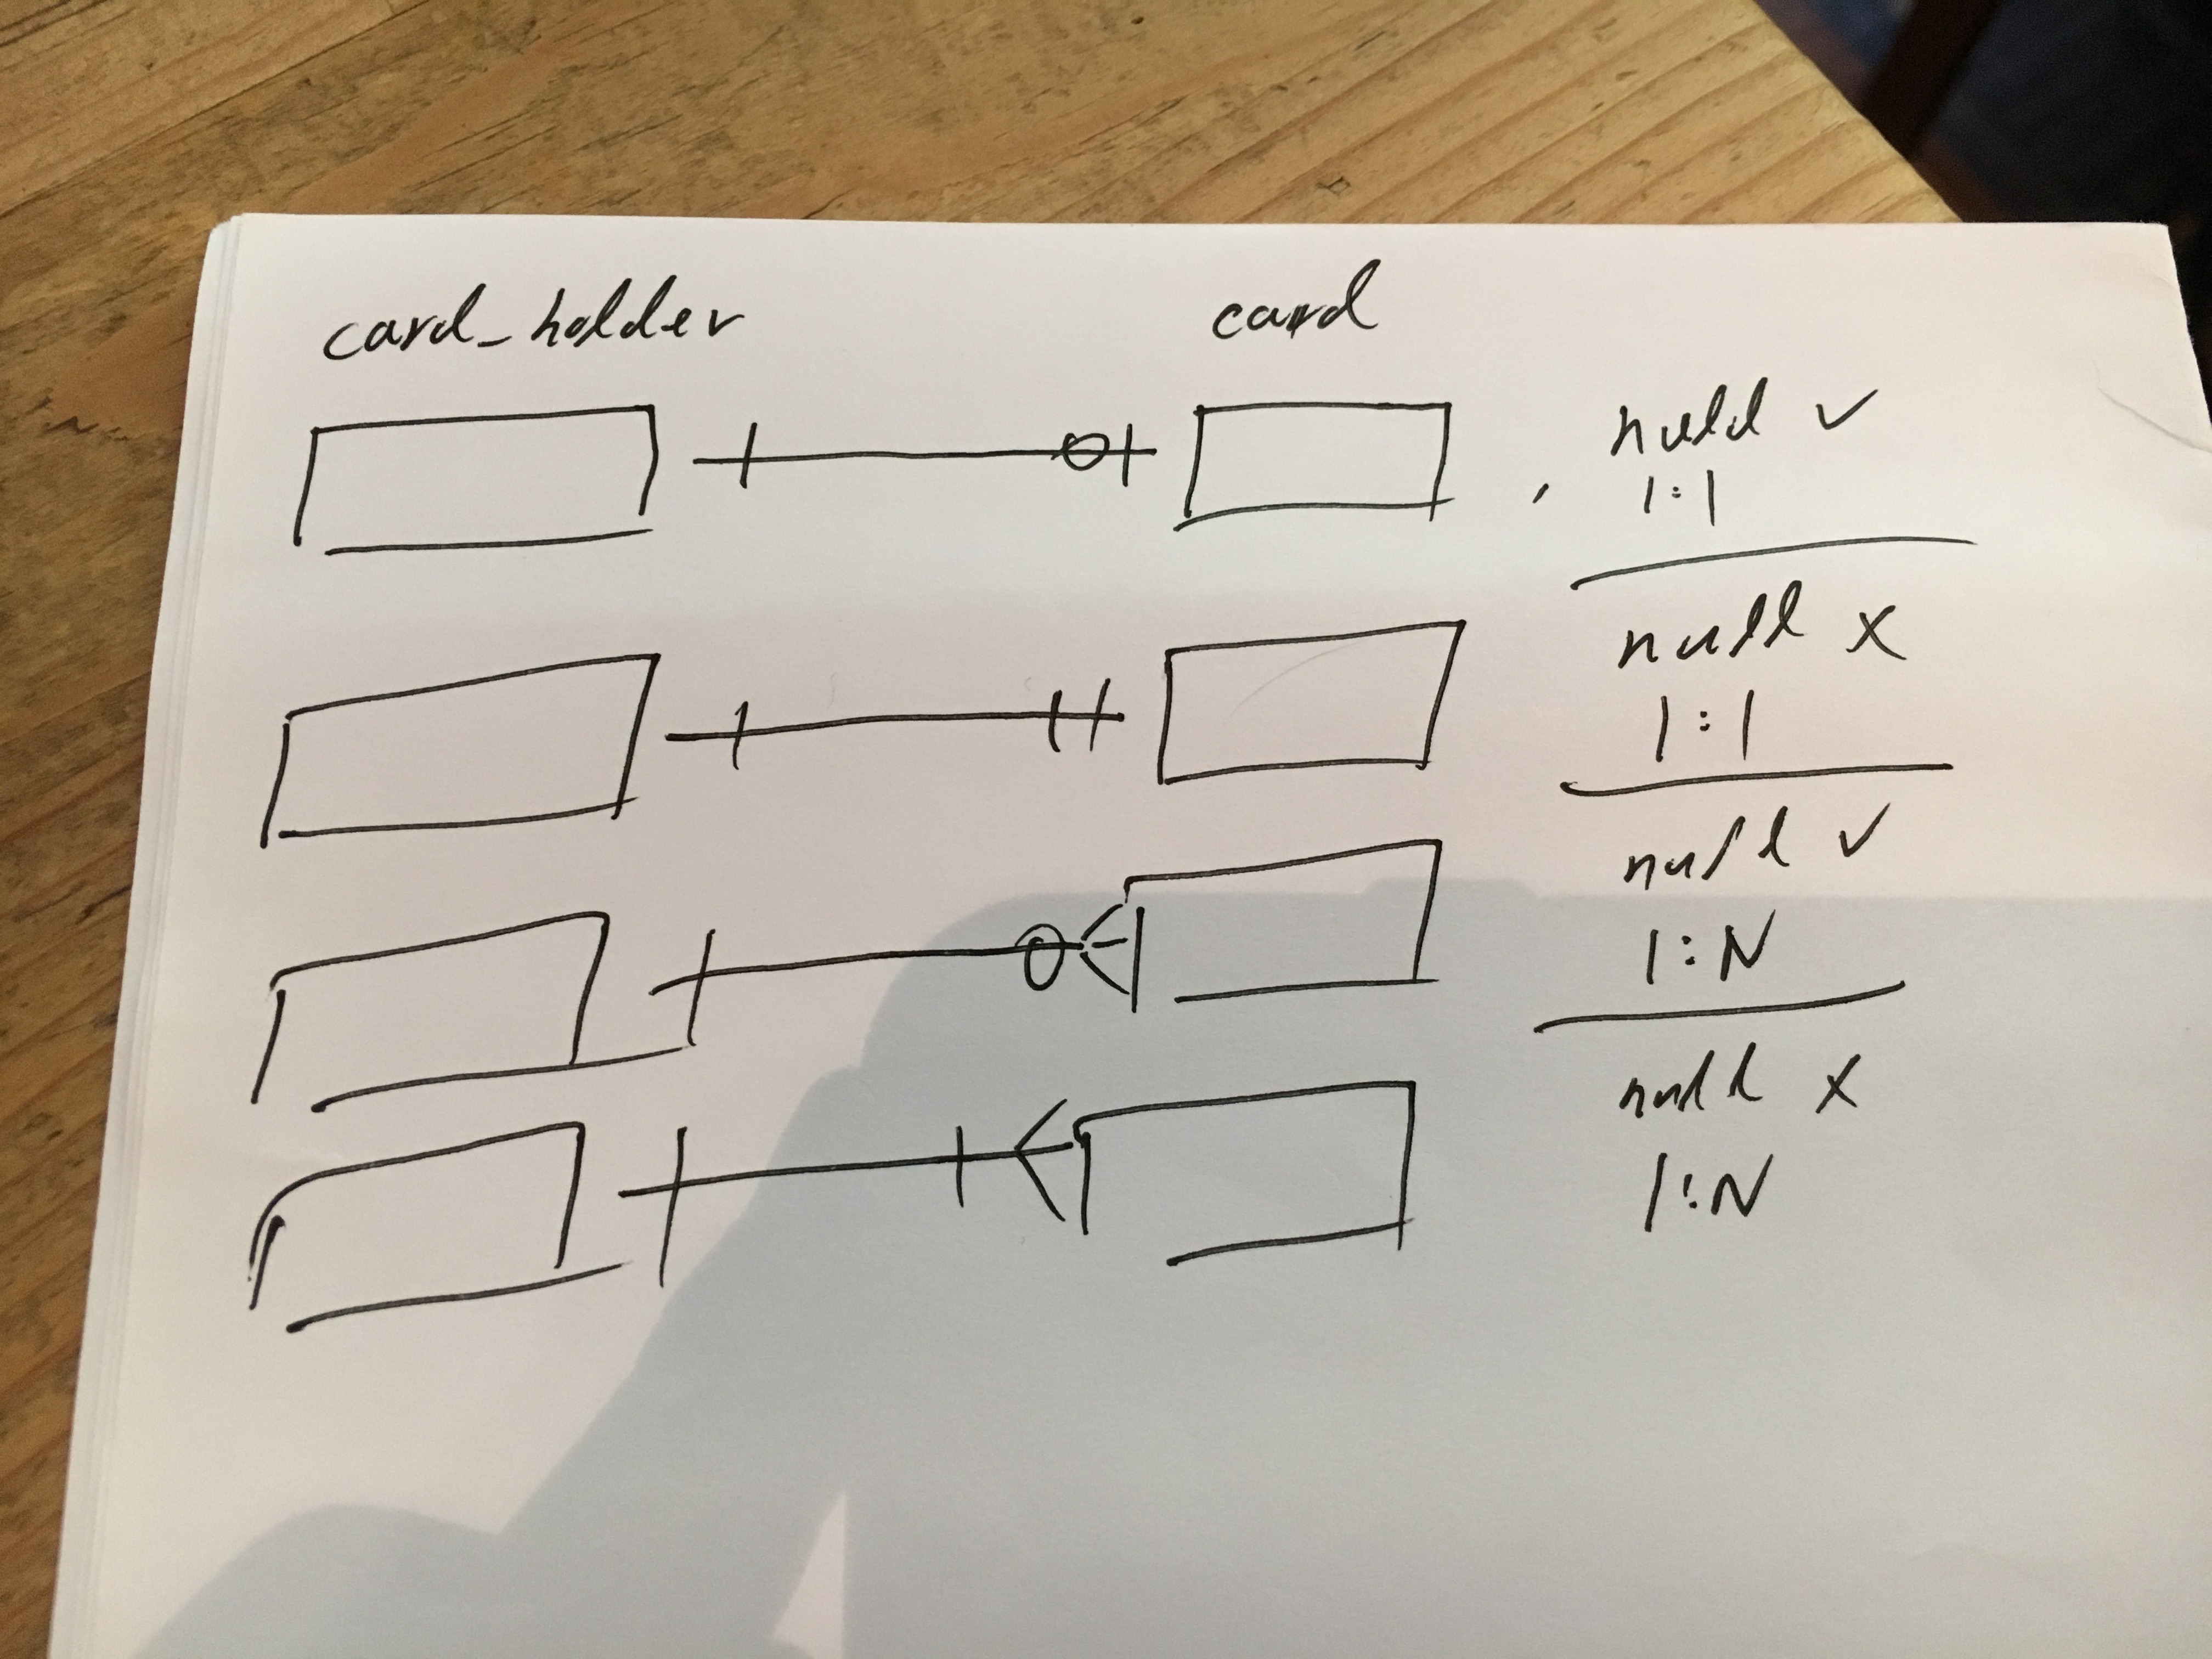 card_holder card
null ✓
1:1
null x
1:1
null ✓
1:N
null x
1:N